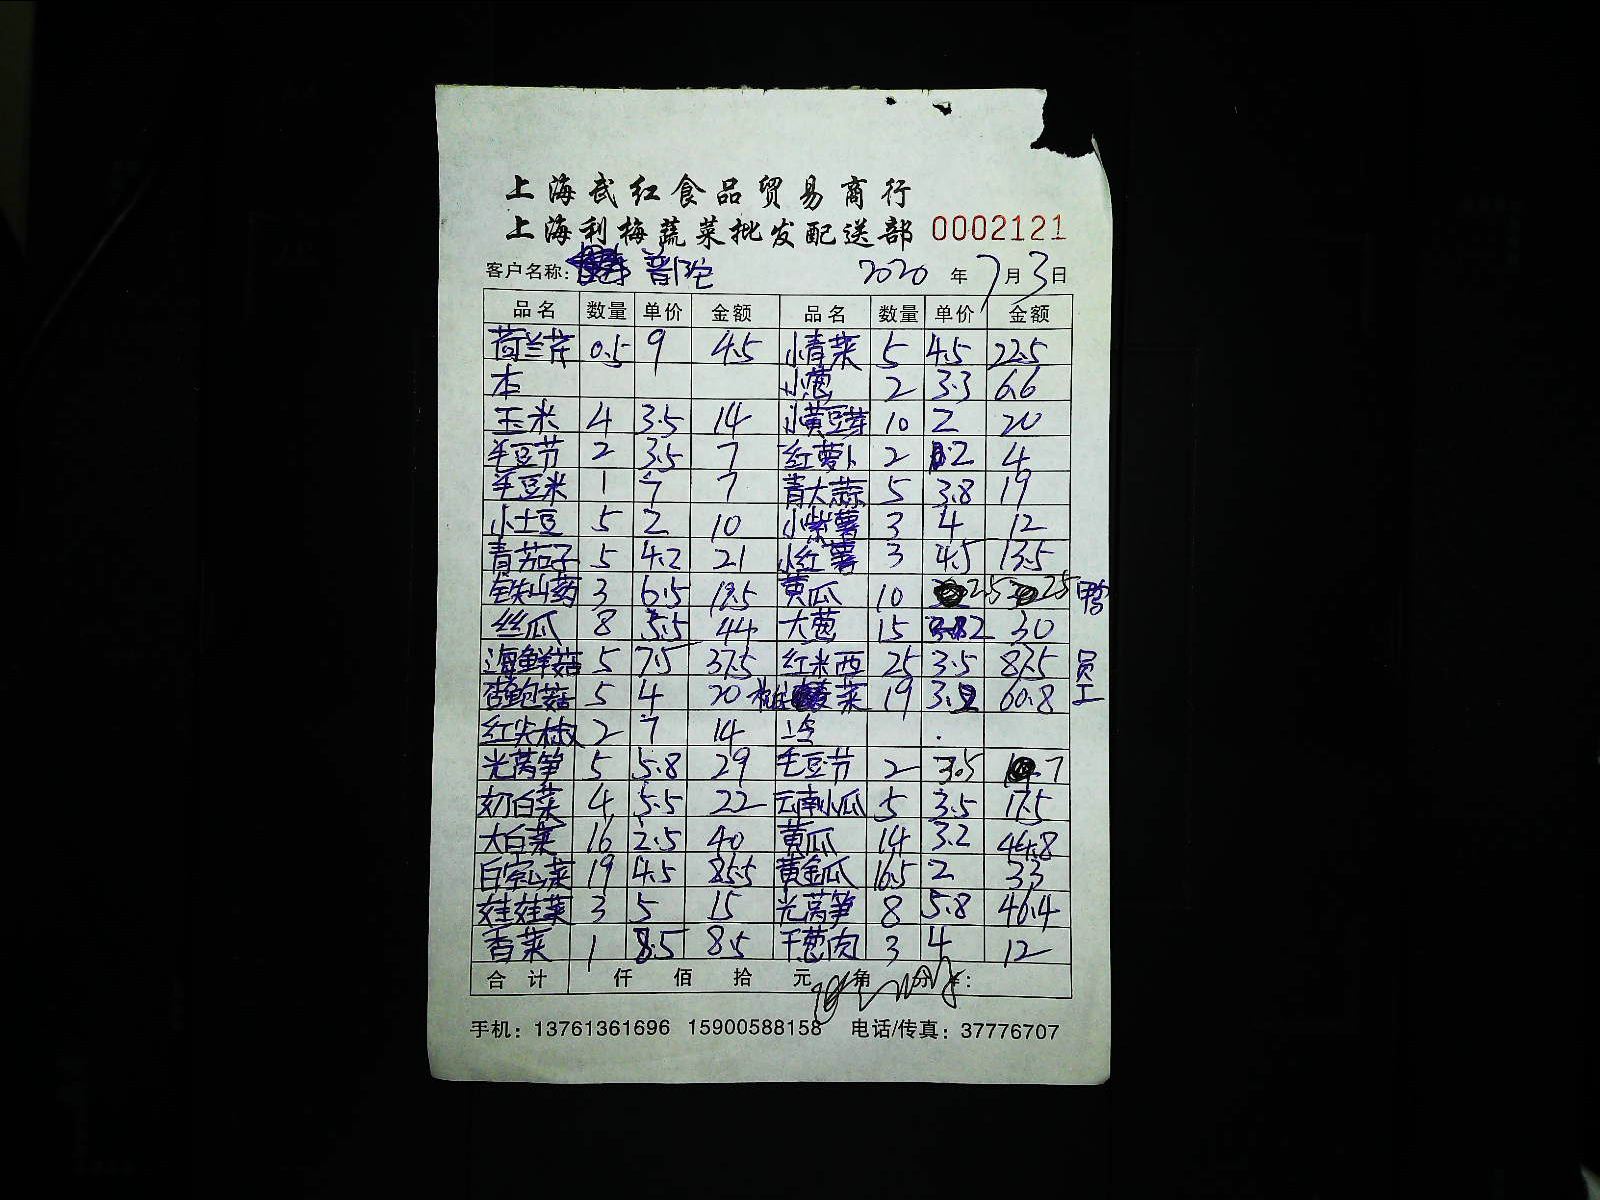 上海武红食品贸易商行
上海利梅蔬菜批发配送部 0002121
客户名称: 普陀 2020 年 7 月 3 日
品名 数量 单价 金额 品名 数量 单价 金额
荷兰芹 0.5 9 4.5 小青菜 5 4.5 22.5
本 小葱 2 3.3 6.6
玉米 4 3.5 14 小黄豆芽 10 2 20
毛豆节 2 3.5 7 红萝卜 2 2 4
毛豆米 1 7 7 青大蒜 5 3.8 19
小土豆 5 2 10 小紫薯 3 4 12
青茄子 5 4.2 21 小红薯 3 4.5 13.5
铁山药 3 6.5 19.5 黄瓜 10 2.5 25 鸭
丝瓜 8 5.5 44 大葱 15 2 30
海鲜菇 5 7.5 37.5 红米西 25 3.5 87.5 员
杏鲍菇 5 4 20 菜 19 3.2 60.8 工
红尖椒 2 7 14
光莴笋 5 5.8 29 毛豆节 2 3.5 7
奶白菜 4 5.5 22 云南小瓜 5 3.5 17.5
大白菜 16 2.5 40 黄瓜 14 3.2 44.8
白宝山菜 19 4.5 85.5 黄金瓜 16.5 2 33
娃娃菜 3 5 15 光莴笋 8 5.8 46.4
香菜 1 8.5 8.5 干葱肉 3 4 12
合计 仟 佰 拾 元 角 分 ¥:
手机: 13761361696 15900588158 电话/传真: 37776707